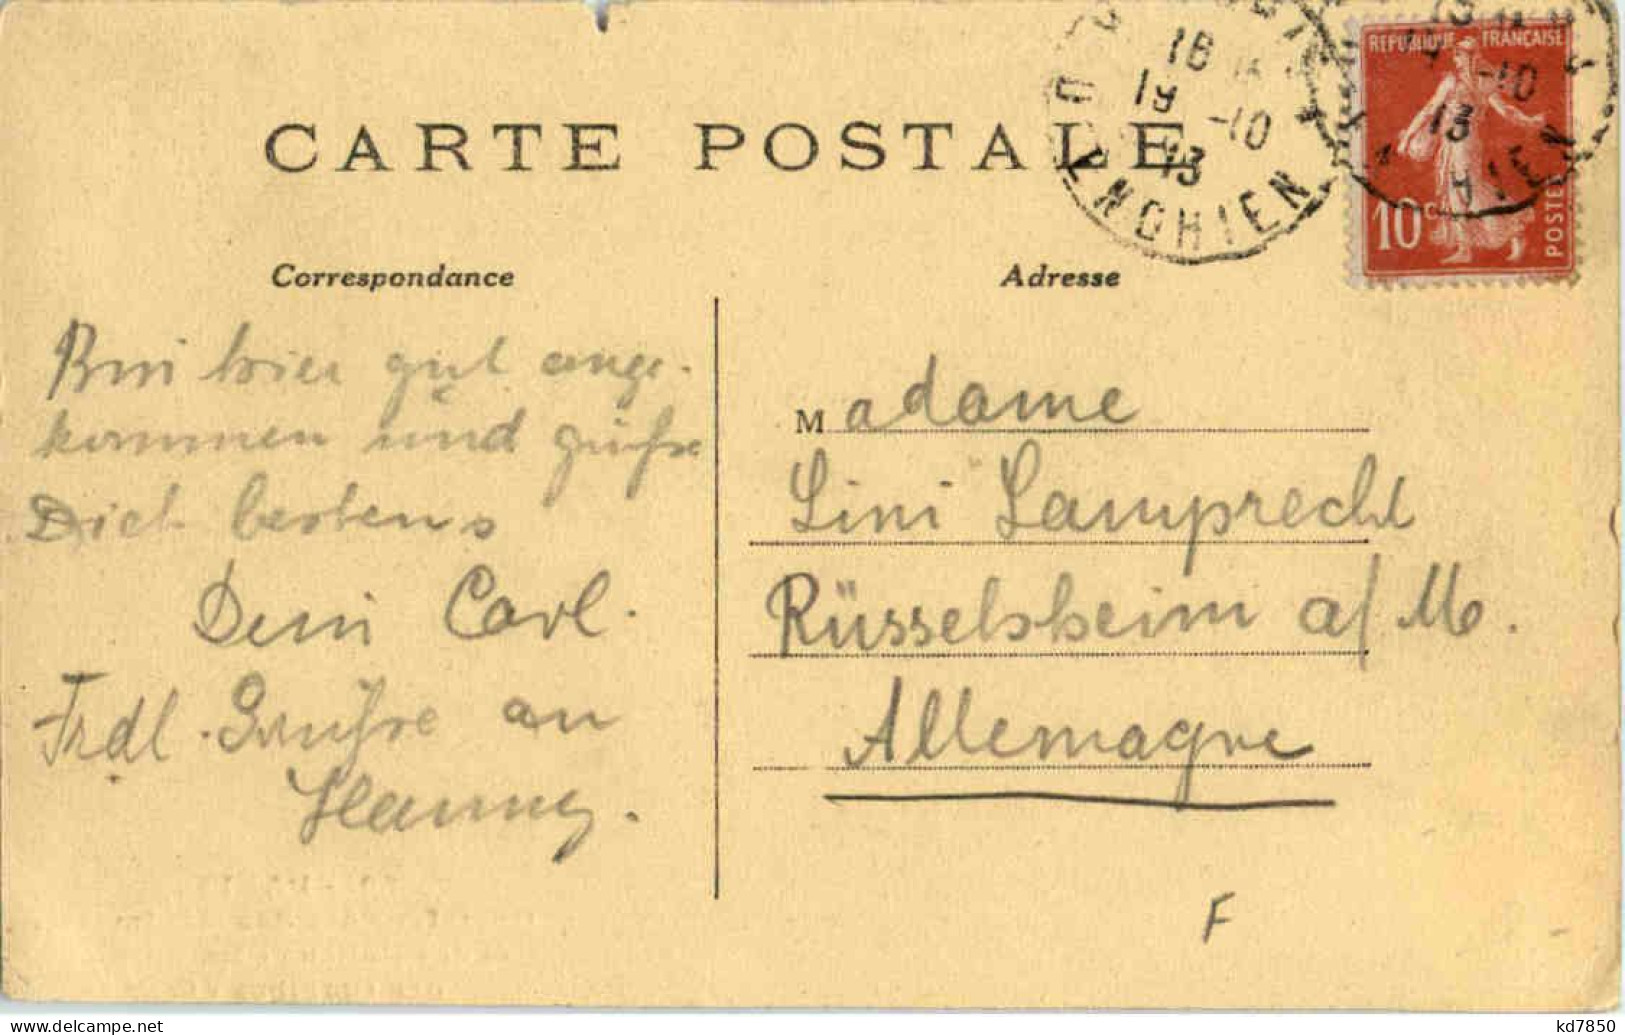 CARTE POSTALE
Correspondance
Adresse
Bin hier gut ange-
kommen und grüße
Dich bestens
Dein Carl.
Frdl. Grüße an
Hanny.
Madame
Lini Lamprecht
Rüsselsheim a/M.
Allemagne
F
REPUBLIQUE FRANÇAISE
10 c
POSTES
18
19 -10
13
ENGHIEN
-10
13
HIEN
kd7850